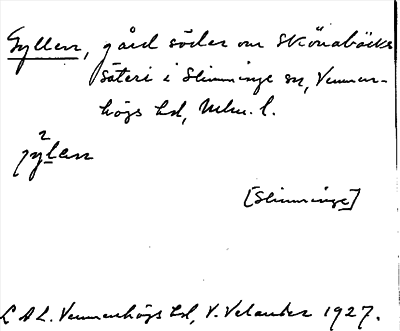 Gyllen, gård söder om Skönabäcks
säteri i Slimminge sn, Vemmen-
högs hd, Mlm. l.
jy²len
[Slimminge]
L A L. Vemmenhögs hd, V. Velander 1927.